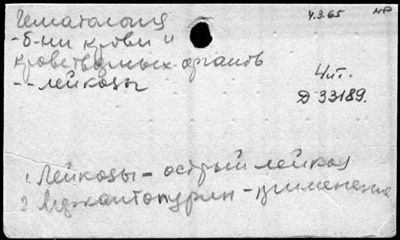 Гематология
4.3.65 НР
- б-ни крови и
кроветворных органов
-- лейкозы
Чит.
Д 33189.
1. Лейкозы - острый лейкоз
2. Меркаптопурин - применение